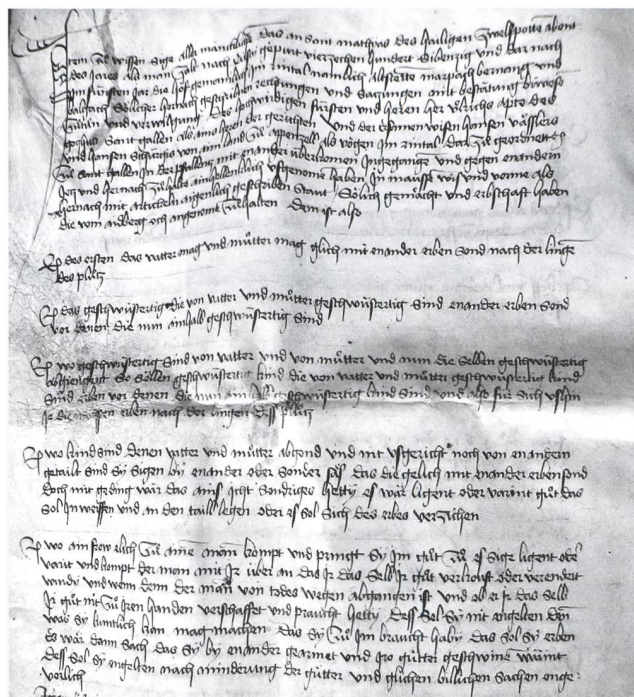 Item Zu wissen sige aller mäncklich das an sant mathyas des hailigen Zwelfpotten abent
des Jares als man Zalt nach Cristy gepurt vierzechen hundert Sibenzig und dar nach
Im fünften Jar die hofgemainden Im rintal namlich altstetten marpach bernang und
balgach Sölicher hernach geschriben rechnungen und Satzungen mit bestätung bywesen
Gullun und verwilgung Des hochwirdigen fürsten und heren her Ulrichs apte des
gotzhus Sant gallen als ains heren der gerichten und der ersamen wisen hansen vässlers
und hansen Schürgis von am land Zu appentzell als vögten Im rintal dar Zu geordnetten
Zu sant gallen In der pfallentz mit enander überkomen Ingegangen und gegen enandern
Jetz und hernach Zu halten ainhellenklich ufgenome haben In maüsse wis und vorme als
hernach mit articklen aigenlich geschriben Staut Sölich gemächt und erbschaft haben
die vom andberg och angenomen Zu halten dem ist also
Des ersten das vatter mag und mütter mag glich mit enander erben sond nach der linge
des plutz
Das geschwüstertig die von vatter und mütter geschwüstertig sind enander erben sond
vor denen die nun ainhalb geschwüstertig sind
wo geschwüstertig Sind von vatter und von mütter und nun die Selben geschwüstertig
abgiengint So söllen geschwüstertig kind die von vatter und mütter geschwüstertig kind
Sind erben vor denen die nun ain geschwüstertig kind Sind und also für Sich ushin
Je die nächsten erben nach der lingen dess plutz
wo kind sind denen vatter und mütter abgend und nit usgericht noch von enandern
getailt sind Sy Sigen by enander oder Sonder So sol das die gelich mit enander erben sond
doch mit geding wär das ains icht sondriges hetty es wär ligent oder varint güt das
Sol In werffen und an den taill legen oder es sol Sich des erbes verzichen
wo ain frow elich Zu aine man kompt und pringt Sy Im güt Zu es Sige ligent oder
varit und kompt der man mit Ir über an das Ir das Selb Ir güt verkouft oder verendert
wurdy und wenn denn der man von todes wegen abgangen ist und ob er Ir das selb
Ir güt nit Zu Iren handen verschaffet und praucht hetty Dess sol Sy nit engelten den
was Sy kuntlich kan mag machen das Sy Zu Im braucht haby das sol Sy erben
Es wär dann Sach das Sy by enander gearmet und Iro gütter geschwine wärint
Dess sol Sy engelten nach minderung der gütter und glichen billichen sachen unge-
varlich